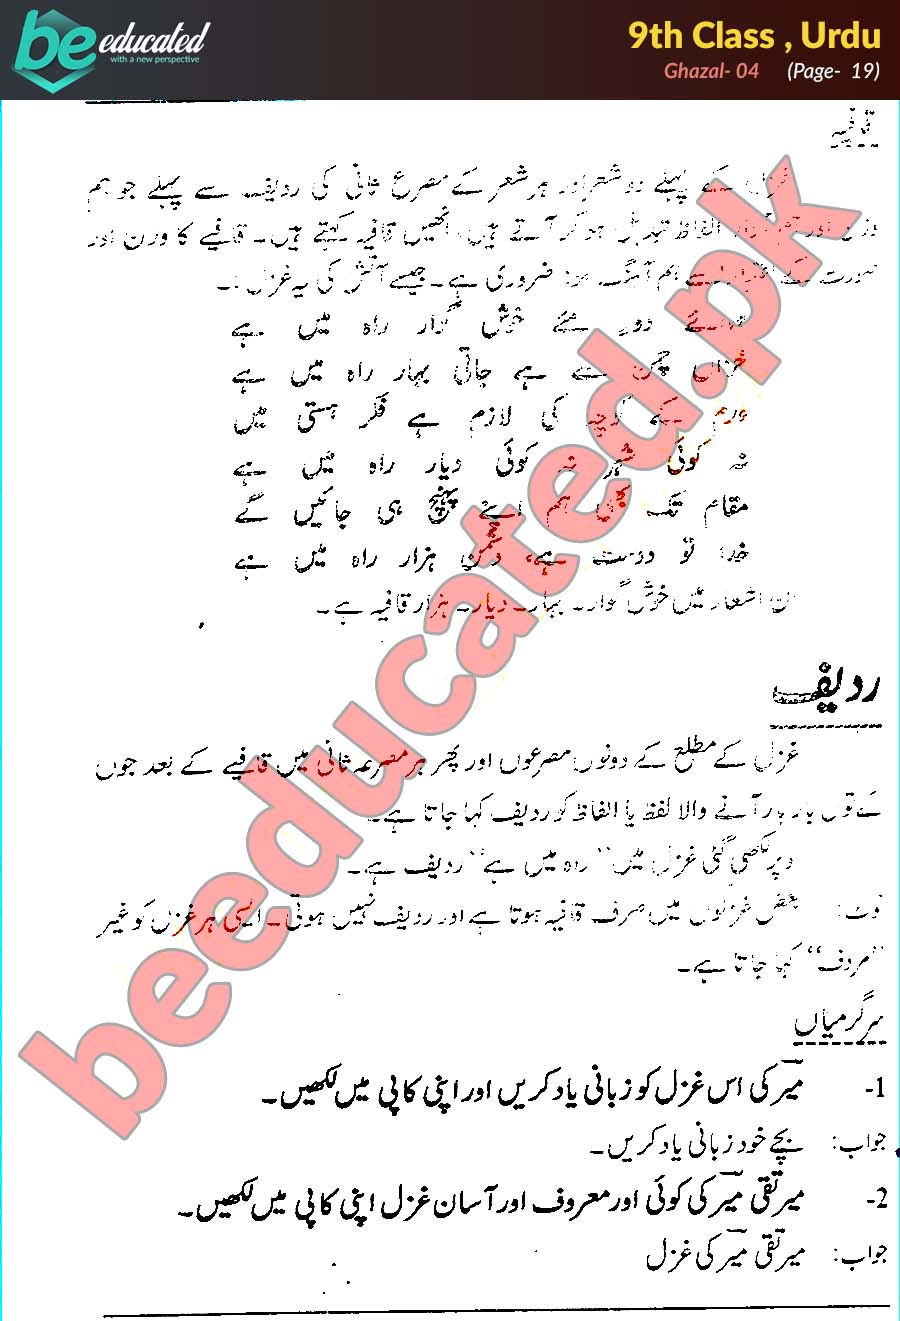 be educated
with a new perspective
9th Class , Urdu
Ghazal- 04 (Page- 19)
قافیہ
غزل کے پہلے دو شعر اور ہر شعر کے مصرع ثانی کی ردیف سے پہلے جو ہم
وزن اور الفاظ تبدیل ہو کر آتے ہیں، انھیں قافیہ کہتے ہیں۔ قافیے کا وزن اور
صورت کے اعتبار سے ہم آہنگ ہونا ضروری ہے۔ جیسے آتش کی یہ غزل :۔
خوش گوار راہ میں ہے
خزاں چمن سے ہے جاتی بہار راہ میں ہے
عدم کے کوچ کی لازم ہے فکر ہستی میں
نہ کوئی شہر نہ کوئی دیار راہ میں ہے
مقام تک بھی ہم اپنے پہنچ ہی جائیں گے
خدا تو دوست ہے، دشمن ہزار راہ میں ہے
ان اشعار میں خوش گوار۔ بہار۔ دیار۔ ہزار قافیہ ہے۔
ردیف
غزل کے مطلع کے دونوں مصرعوں اور پھر ہر مصرعہ ثانی میں قافیے کے بعد جوں
کے توں بار بار آنے والا لفظ یا الفاظ کو ردیف کہا جاتا ہے۔
اوپر لکھی گئی غزل میں "راہ میں ہے" ردیف ہے۔
نوٹ: بعض غزلوں میں صرف قافیہ ہوتا ہے اور ردیف نہیں ہوتی۔ ایسی ہر غزل کو غیر
"مردف" کہا جاتا ہے۔
سرگرمیاں
-1 میر کی اس غزل کو زبانی یاد کریں اور اپنی کاپی میں لکھیں۔
جواب: بچے خود زبانی یاد کریں۔
-2 میر تقی میر کی کوئی اور معروف اور آسان غزل اپنی کاپی میں لکھیں۔
جواب: میر تقی میر کی غزل
beeducated.pk